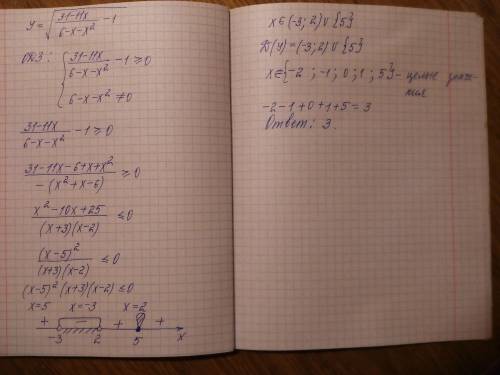 y = √((31-11x)/(6-x-x²) - 1)
ОДЗ: { (31-11x)/(6-x-x²) - 1 ≥ 0
6-x-x² ≠ 0
(31-11x)/(6-x-x²) - 1 ≥ 0
(31-11x-6+x+x²)/(-(x²+x-6)) ≥ 0
(x²-10x+25)/((x+3)(x-2)) ≤ 0
(x-5)²/((x+3)(x-2)) ≤ 0
(x-5)²(x+3)(x-2) ≤ 0
x=5 x=-3 x=2
+ - + +
-3 2 5 x
x ∈ (-3; 2) ∪ {5}
D(y) = (-3; 2) ∪ {5}
x ∈ {-2; -1; 0; 1; 5} - целые
-2-1+0+1+5 = 3
Ответ: 3.